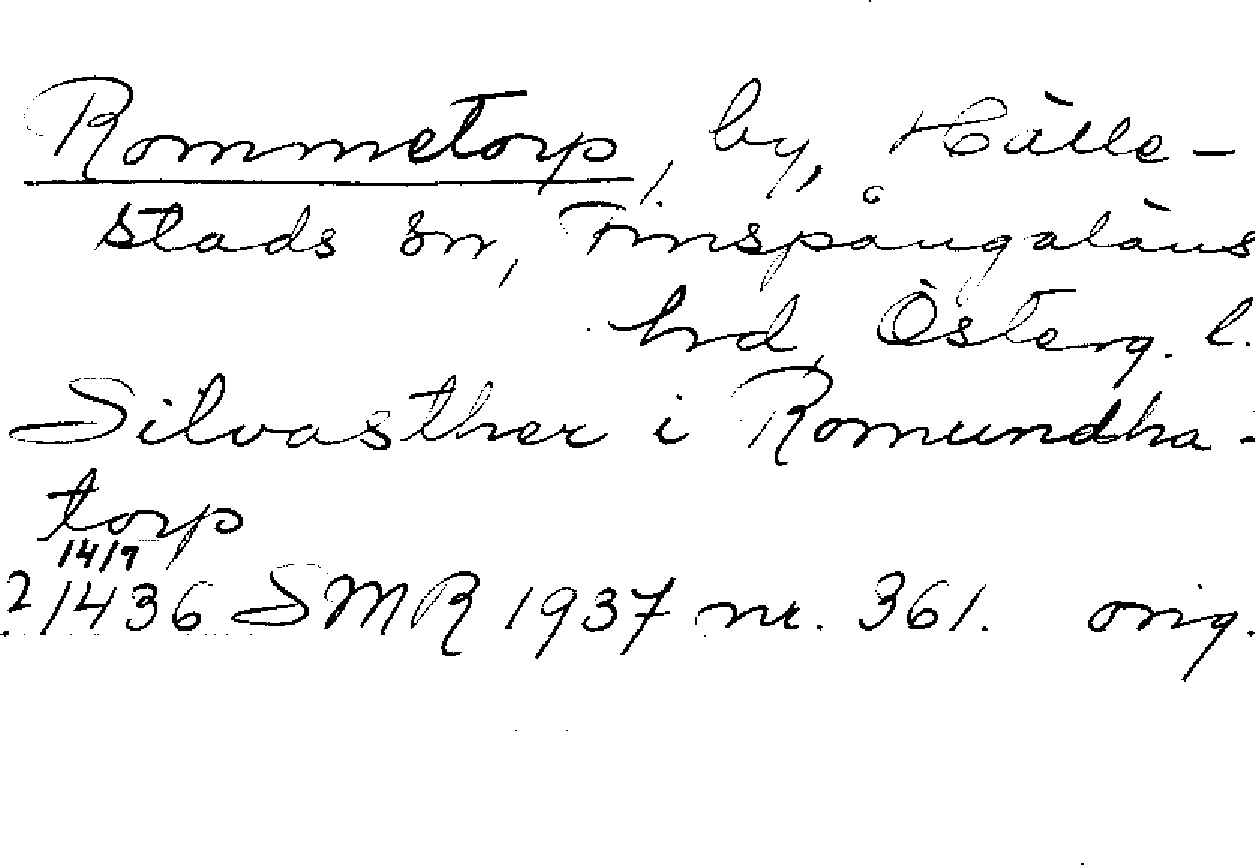 Rommetorp, by, Hälle-
stads sn, Finspångaläns
hd, Österg. l.
Silvasther i Romundha-
torp
14/9
1436 SMR 1937 nr. 361. orig.